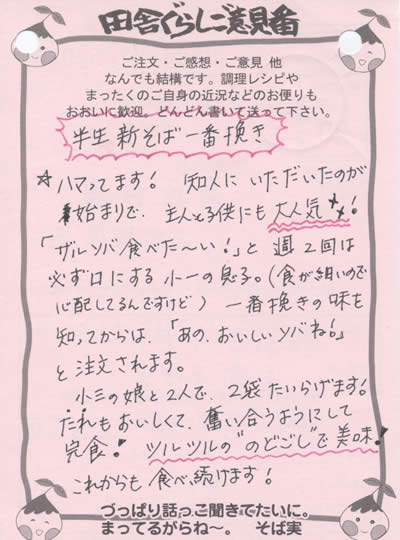 田舎ぐらしご意見番
ご注文・ご感想・ご意見 他
なんでも結構です。調理レシピや
まったくのご自身の近況などのお便りも
おおいに歓迎。どんどん書いて送って下さい。
半生 新そば一番挽き
☆ハマってます! 知人にいただいたのが
始まりで、主人と子供にも大人気!
「ザルソバ食べた〜い!」と週2回は
必ず口にする小一の息子。(食が細いので
心配してるんですけど) 一番挽きの味を
知ってからは、「あの、おいしいソバね!」
と注文されます。
小三の娘と2人で、2袋たいらげます!
たれもおいしくて、奮い合うようにして
完食! ツルツルの"のどごし"で美味!
これからも食べ続けます!
づっぱり話っこ聞きてたいに。
まってるがらね〜。 そば実